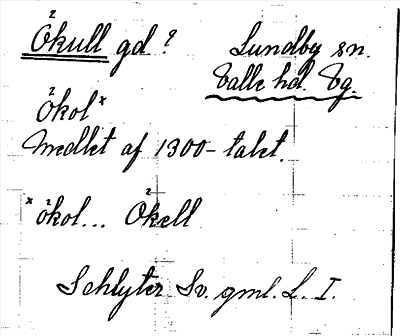 Ökull gd ? Lundby sn.
Valle hd. Vg.
Ökol*
Medlet af 1300-talet.
* ökol... Økell
Schlyter Sv. gml. L. I.